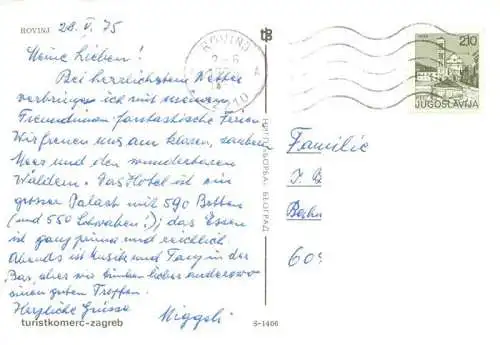 ROVINJ 28. V. 75
Meine Lieben!
Bei herrlichstem Wetter
verbringe ich mit meinem
fantastische Ferien.
Wir freuen uns am klaren, sauberen
Meer und den wunderbaren
Wäldern. Das Hotel ist ein
grosser Palast mit 590 Betten
(und 550 Schwaben!); das Essen
ist ganz prima und reichlich.
Abends ist Musik und Tanz in der
Bar, aber wir trinken lieber anderswo
einen guten Tropfen.
Herzliche Grüsse
Miggeli
turistkomerc-zagreb
S-1406
ROVINJ
2.10
JUGOSLAVIJA
Familie
J. B
60